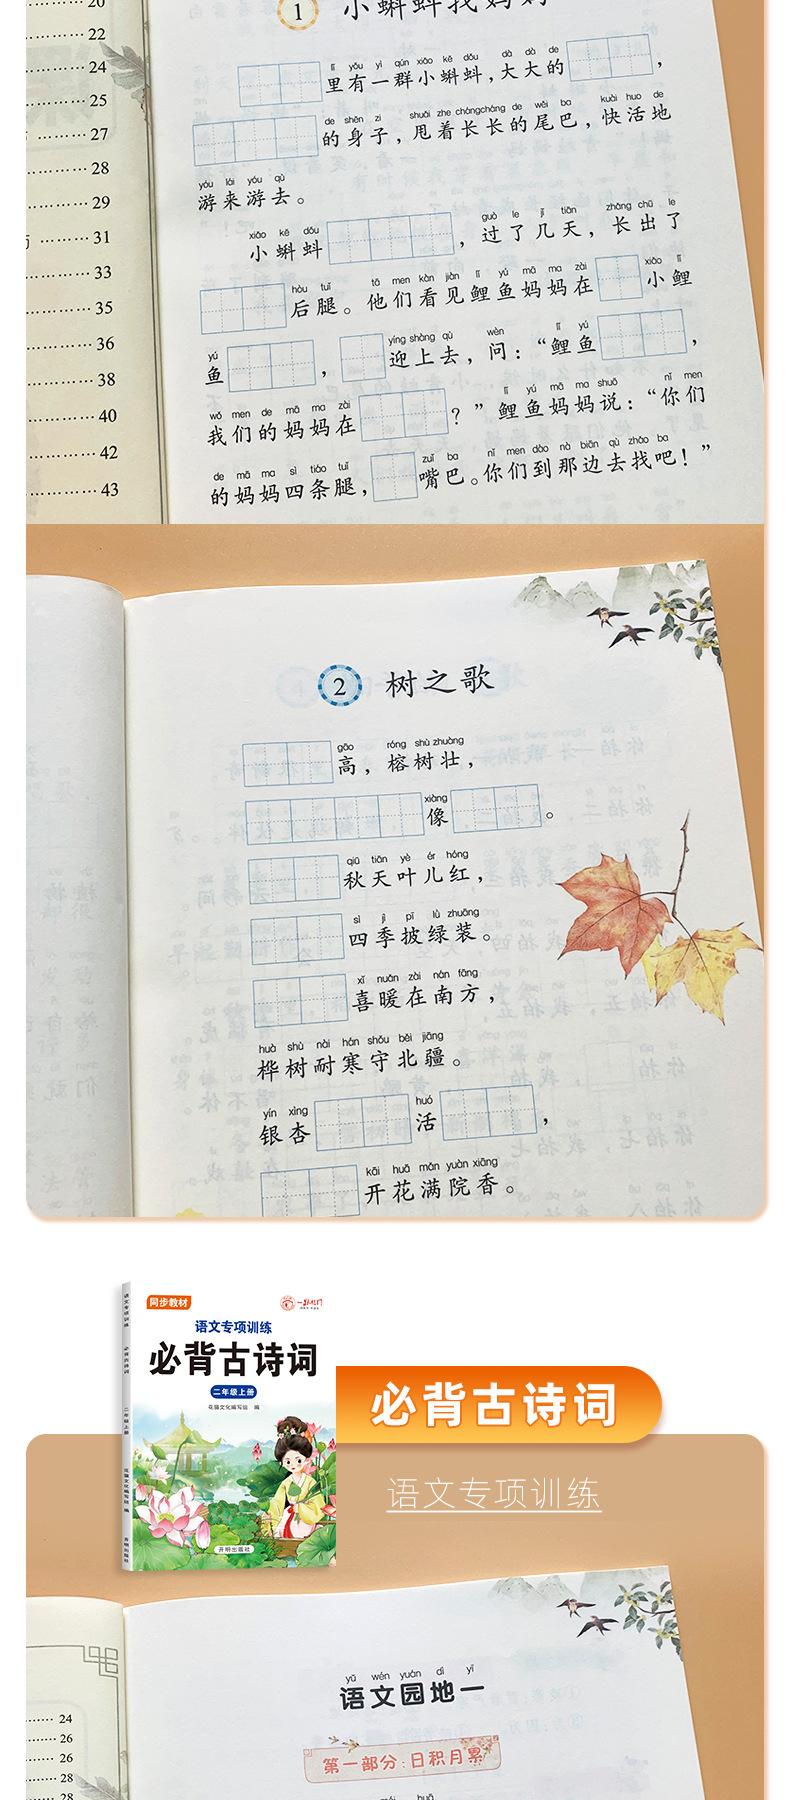 20
22
24
25
27
28
29
31
33
35
36
38
40
42
43
1 小蝌蚪找妈妈
lǐ yǒu yì qún xiǎo kē dǒu dà dà de
里有一群小蝌蚪，大大的 ，
de shēn zi shuǎi zhe cháng cháng de wěi ba kuài huo de
的身子，甩着长长的尾巴，快活地
yóu lái yóu qù
游来游去。
xiǎo kē dǒu guò le jǐ tiān zhǎng chū le
小蝌蚪 ，过了几天，长出了
hòu tuǐ tā men kàn jiàn lǐ yú mā ma zài xiǎo lǐ
后腿。他们看见鲤鱼妈妈在 小鲤
yú yíng shàng qù wèn lǐ yú
鱼 ， 迎上去，问：“鲤鱼 ，
wǒ men de mā ma zài lǐ yú mā ma shuō nǐ men
我们的妈妈在 ？”鲤鱼妈妈说：“你们
de mā ma sì tiáo tuǐ zuǐ ba nǐ men dào nà biān qù zhǎo ba
的妈妈四条腿， 嘴巴。你们到那边去找吧！”
2 树之歌
gāo róng shù zhuàng
高，榕树壮，
xiàng
像 。
qiū tiān yè ér hóng
秋天叶儿红，
sì jì pī lǜ zhuāng
四季披绿装。
xǐ nuǎn zài nán fāng
喜暖在南方，
huà shù nài hán shǒu běi jiāng
桦树耐寒守北疆。
yín xìng huó
银杏 活 ，
kāi huā mǎn yuàn xiāng
开花满院香。
同步教材
语文专项训练
必背古诗词
二年级上册
花猫文化编写组 编
开明出版社
语文专项训练
必背古诗词
二年级上册
花猫文化编写组 编
开明出版社
必背古诗词
语文专项训练
24
26
26
28
28
yǔ wén yuán dì yī
语文园地一
第一部分：日积月累